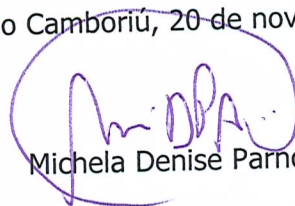 o Camboriú, 20 de nov
Michela Denise Parno